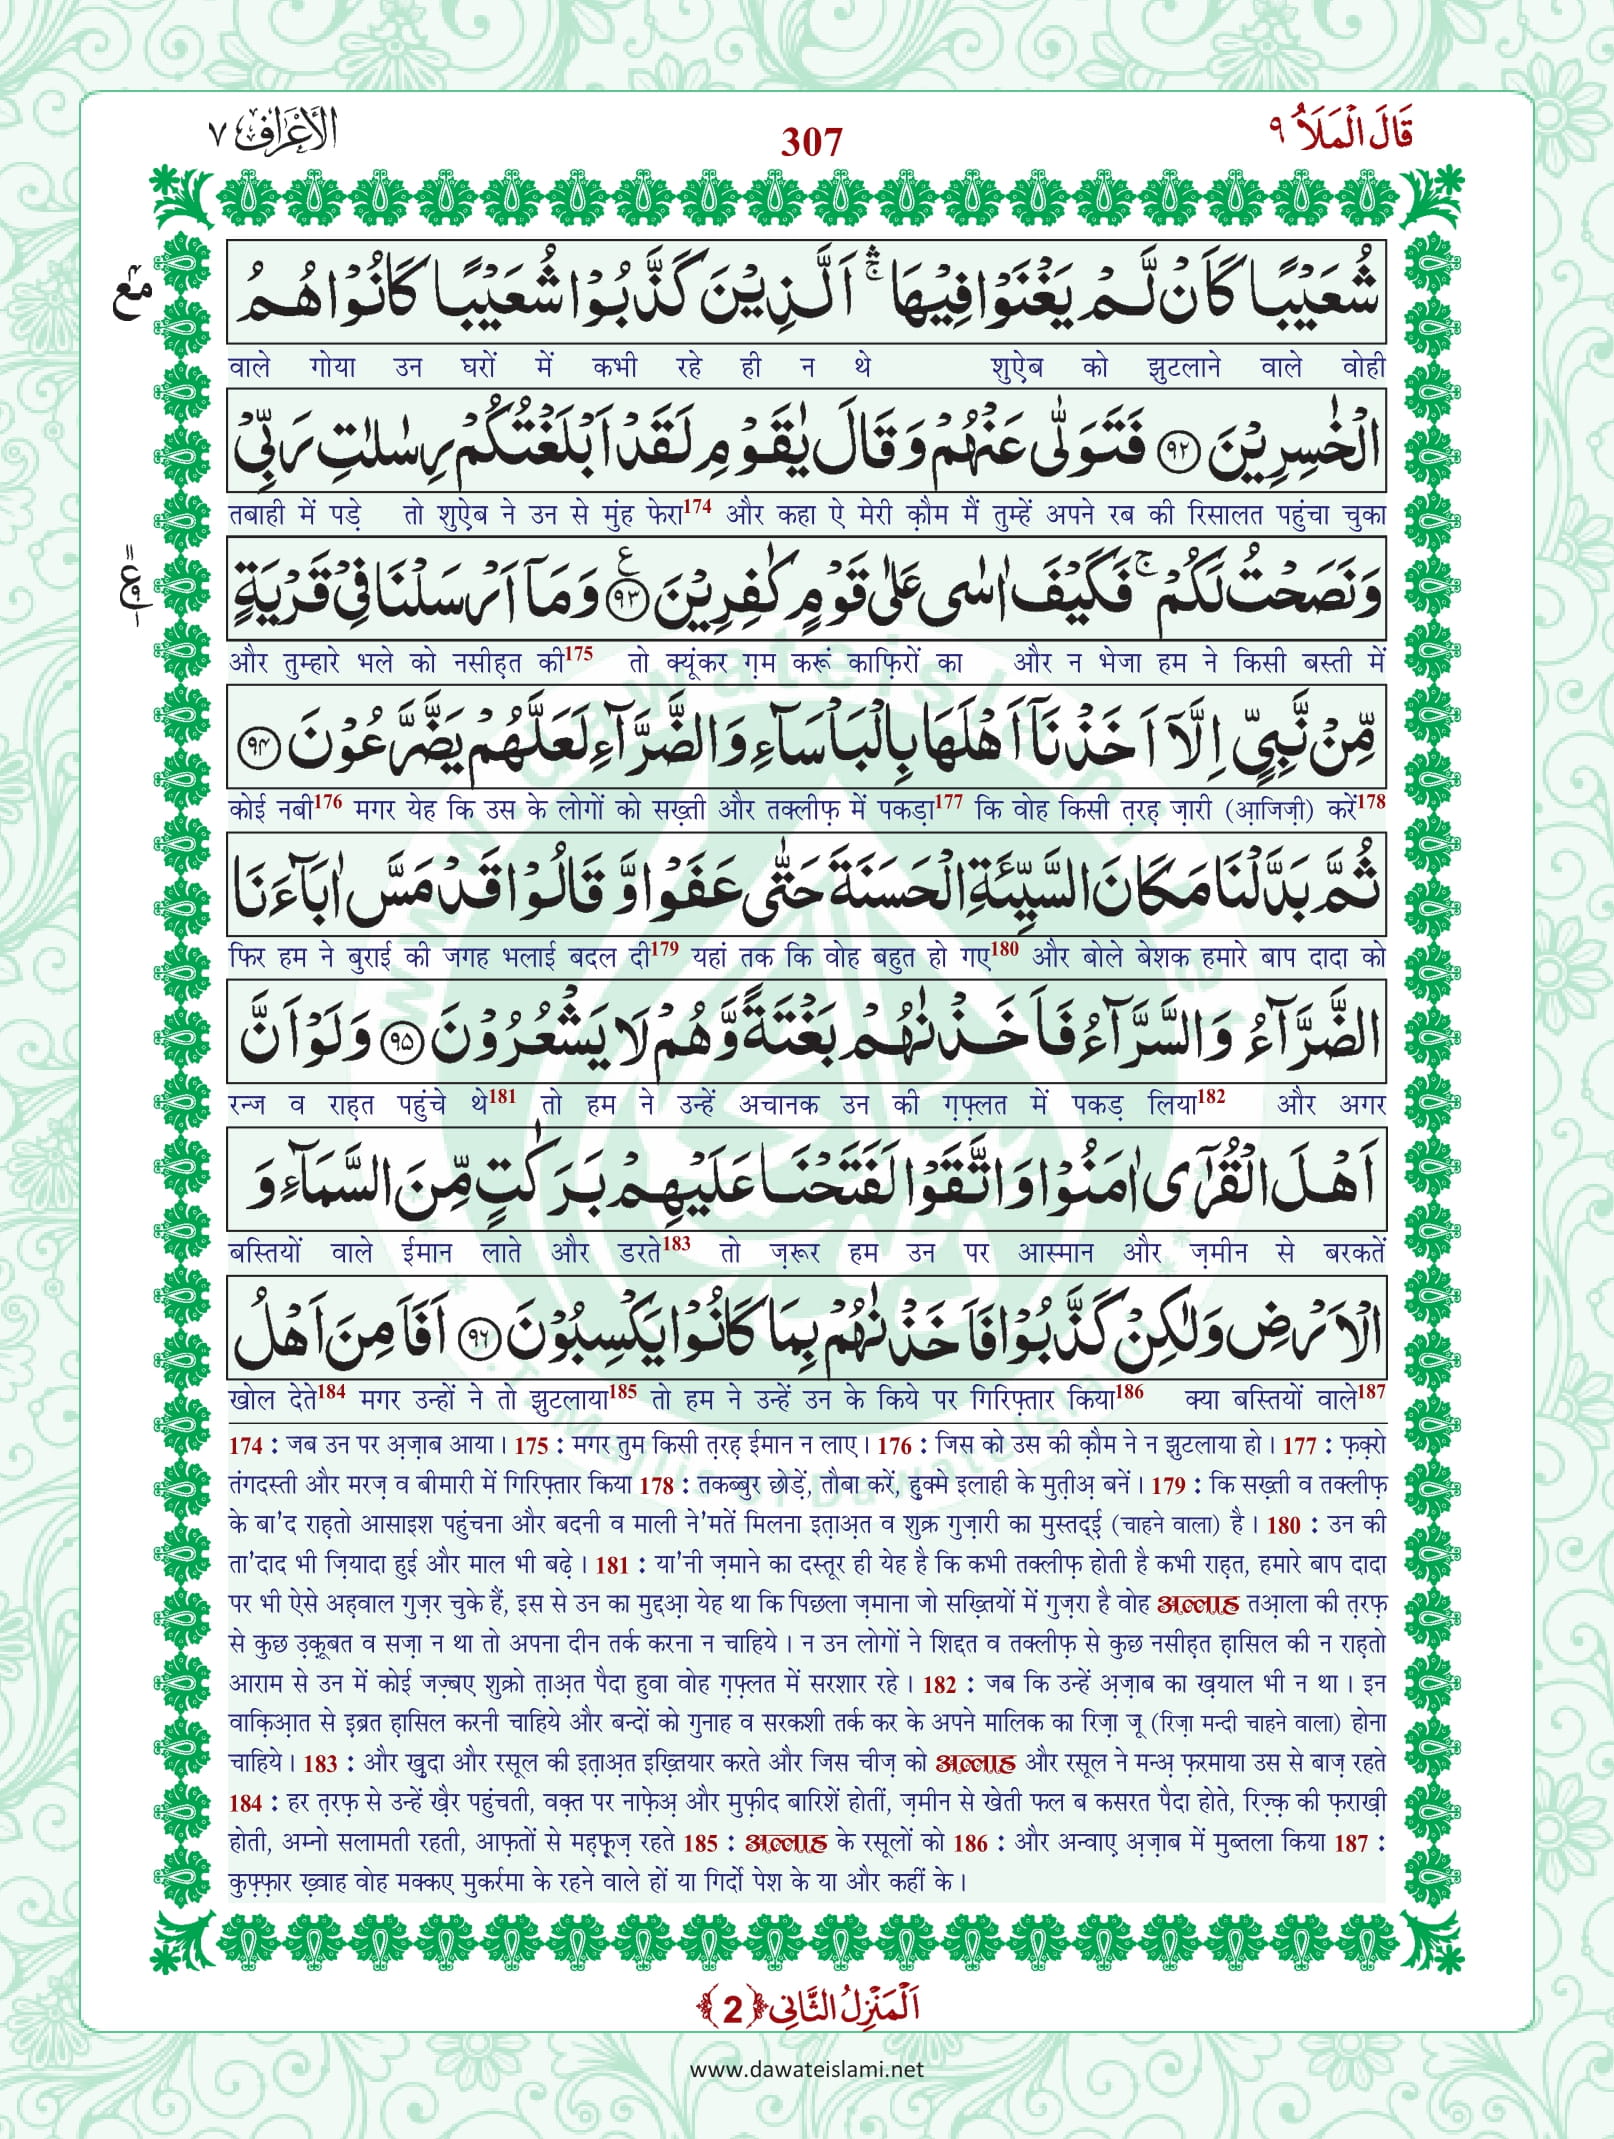 قَالَ الْمَلَاُ ٩
307
الْاَعْرَاف ٧
شُعَيْبًا كَاَنْ لَّمْ يَغْنَوْا فِيْهَا ۛۚ اَلَّذِيْنَ كَذَّبُوْا شُعَيْبًا كَانُوْا هُمُ
वाले गोया उन घरों में कभी रहे ही न थे शुऐब को झुटलाने वाले वोही
الْخٰسِرِيْنَ ﴿٩٢﴾ فَتَوَلّٰى عَنْهُمْ وَقَالَ يٰقَوْمِ لَقَدْ اَبْلَغْتُكُمْ رِسٰلٰتِ رَبِّيْ
तबाही में पड़े तो शुऐब ने उन से मुंह फेरा174 और कहा ऐ मेरी क़ौम मैं तुम्हें अपने रब की रिसालत पहुंचा चुका
وَنَصَحْتُ لَكُمْ ۚ فَكَيْفَ اٰسٰى عَلٰى قَوْمٍ كٰفِرِيْنَ ﴿٩٣﴾ ع وَمَاۤ اَرْسَلْنَا فِيْ قَرْيَةٍ
और तुम्हारे भले को नसीह़त की175 तो क्यूंकर ग़म करूं काफ़िरों का और न भेजा हम ने किसी बस्ती में
مِّنْ نَّبِيٍّ اِلَّاۤ اَخَذْنَاۤ اَهْلَهَا بِالْبَاْسَآءِ وَالضَّرَّآءِ لَعَلَّهُمْ يَضَّرَّعُوْنَ ﴿٩٤﴾
कोई नबी176 मगर येह कि उस के लोगों को सख़्ती और तक्लीफ़ में पकड़ा177 कि वोह किसी त़रह़ ज़ारी (आ़जिज़ी) करें178
ثُمَّ بَدَّلْنَا مَكَانَ السَّيِّئَةِ الْحَسَنَةَ حَتّٰى عَفَوْا وَّ قَالُوْا قَدْ مَسَّ اٰبَآءَنَا
फिर हम ने बुराई की जगह भलाई बदल दी179 यहां तक कि वोह बहुत हो गए180 और बोले बेशक हमारे बाप दादा को
الضَّرَّآءُ وَالسَّرَّآءُ فَاَخَذْنٰهُمْ بَغْتَةً وَّهُمْ لَا يَشْعُرُوْنَ ﴿٩٥﴾ وَلَوْ اَنَّ
रन्ज व राह़त पहुंचे थे181 तो हम ने उन्हें अचानक उन की ग़फ़्लत में पकड़ लिया182 और अगर
اَهْلَ الْقُرٰٓى اٰمَنُوْا وَاتَّقَوْا لَفَتَحْنَا عَلَيْهِمْ بَرَكٰتٍ مِّنَ السَّمَآءِ وَ
बस्तियों वाले ईमान लाते और डरते183 तो ज़रूर हम उन पर आस्मान और ज़मीन से बरकतें
الْاَرْضِ وَلٰكِنْ كَذَّبُوْا فَاَخَذْنٰهُمْ بِمَا كَانُوْا يَكْسِبُوْنَ ﴿٩٦﴾ اَفَاَمِنَ اَهْلُ
खोल देते184 मगर उन्हों ने तो झुटलाया185 तो हम ने उन्हें उन के किये पर गिरिफ़्तार किया186 क्या बस्तियों वाले187
174 : जब उन पर अ़ज़ाब आया। 175 : मगर तुम किसी त़रह़ ईमान न लाए। 176 : जिस को उस की क़ौम ने न झुटलाया हो। 177 : फ़क़्रो
तंगदस्ती और मरज़ व बीमारी में गिरिफ़्तार किया 178 : तकब्बुर छोड़ें, तौबा करें, हुक्मे इलाही के मुत़ीअ़ बनें। 179 : कि सख़्ती व तक्लीफ़
के बा'द राह़तो आसाइश पहुंचना और बदनी व माली ने'मतें मिलना इत़ाअ़त व शुक्र गुज़ारी का मुस्तद्ई (चाहने वाला) है। 180 : उन की
ता'दाद भी ज़ियादा हुई और माल भी बढ़े। 181 : या'नी ज़माने का दस्तूर ही येह है कि कभी तक्लीफ़ होती है कभी राह़त, हमारे बाप दादा
पर भी ऐसे अह़वाल गुज़र चुके हैं, इस से उन का मुद्दआ़ येह था कि पिछला ज़माना जो सख़्तियों में गुज़रा है वोह अल्लाह तआ़ला की त़रफ़
से कुछ उ़क़ूबत व सज़ा न था तो अपना दीन तर्क करना न चाहिये। न उन लोगों ने शिद्दत व तक्लीफ़ से कुछ नसीह़त ह़ासिल की न राह़तो
आराम से उन में कोई जज़्बए शुक्रो त़ाअ़त पैदा हुवा वोह ग़फ़्लत में सरशार रहे। 182 : जब कि उन्हें अ़ज़ाब का ख़याल भी न था। इन
वाक़िआ़त से इ़ब्रत ह़ासिल करनी चाहिये और बन्दों को गुनाह व सरकशी तर्क कर के अपने मालिक का रिज़ा जू (रिज़ा मन्दी चाहने वाला) होना
चाहिये। 183 : और ख़ुदा और रसूल की इत़ाअ़त इख़्तियार करते और जिस चीज़ को अल्लाह और रसूल ने मन्अ़ फ़रमाया उस से बाज़ रहते
184 : हर त़रफ़ से उन्हें ख़ैर पहुंचती, वक़्त पर नाफ़ेअ़ और मुफ़ीद बारिशें होतीं, ज़मीन से खेती फल ब कसरत पैदा होते, रिज़्क़ की फ़राख़ी
होती, अम्नो सलामती रहती, आफ़तों से मह़फ़ूज़ रहते 185 : अल्लाह के रसूलों को 186 : और अन्वाए अ़ज़ाब में मुब्तला किया 187 :
कुफ़्फ़ार ख़्वाह वोह मक्कए मुकर्रमा के रहने वाले हों या गिर्दो पेश के या और कहीं के।
اَلْمَنْزِلُ الثَّانِى ﴿2﴾
www.dawateislami.net